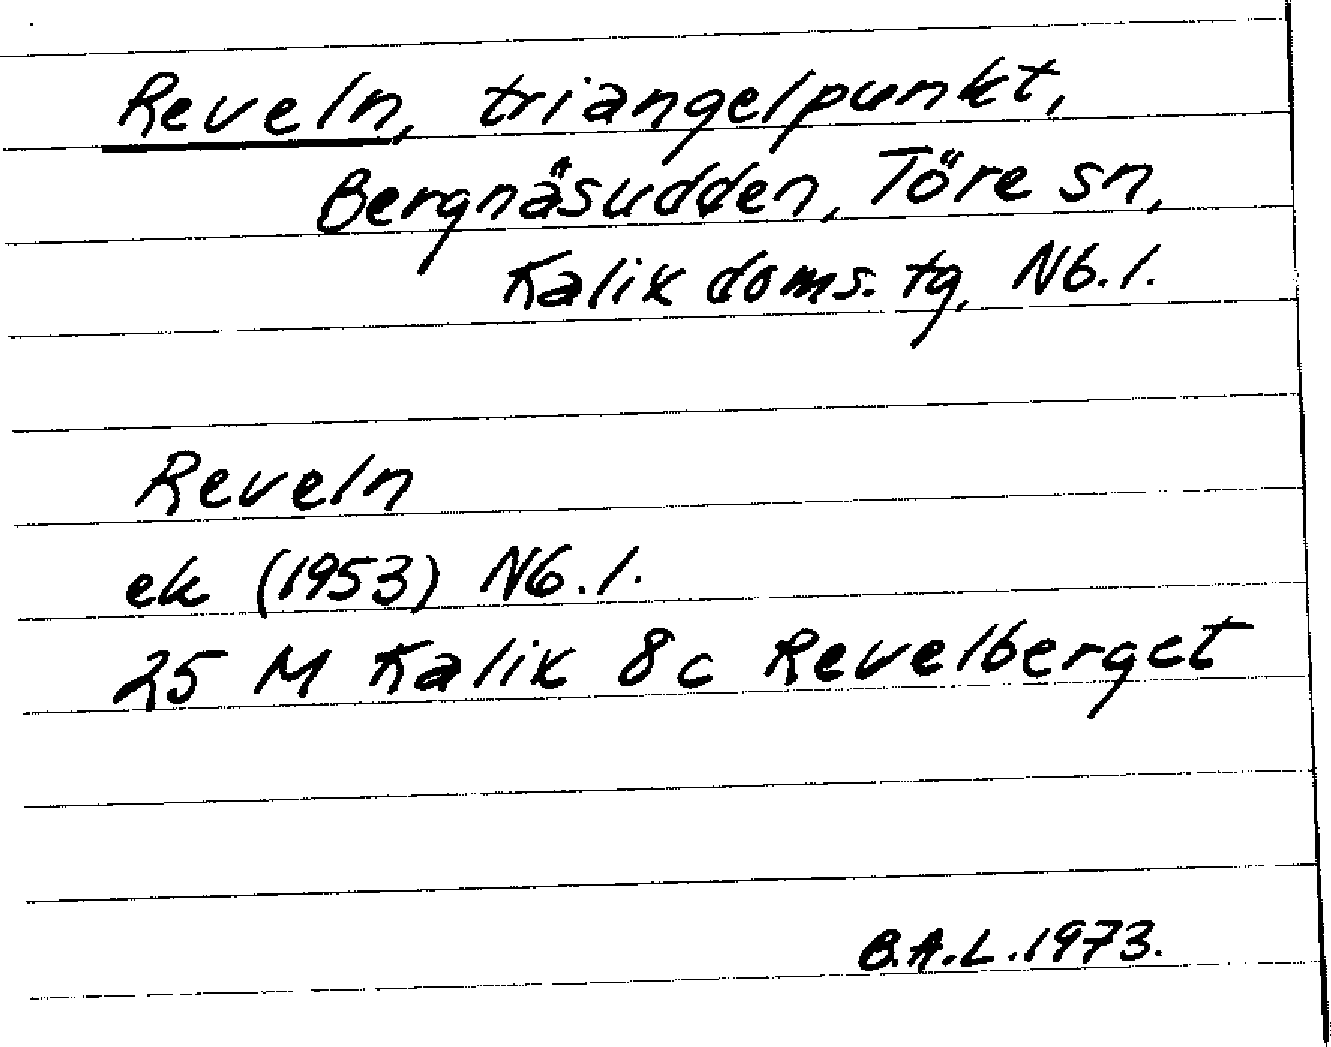 Reveln, triangelpunkt,
Bergnäsudden, Töre sn,
Kalix doms. tg, Nb. l.
Reveln
ek (1953) Nb. l.
25 M Kalix 8c Revelberget
B.A.L. 1973.